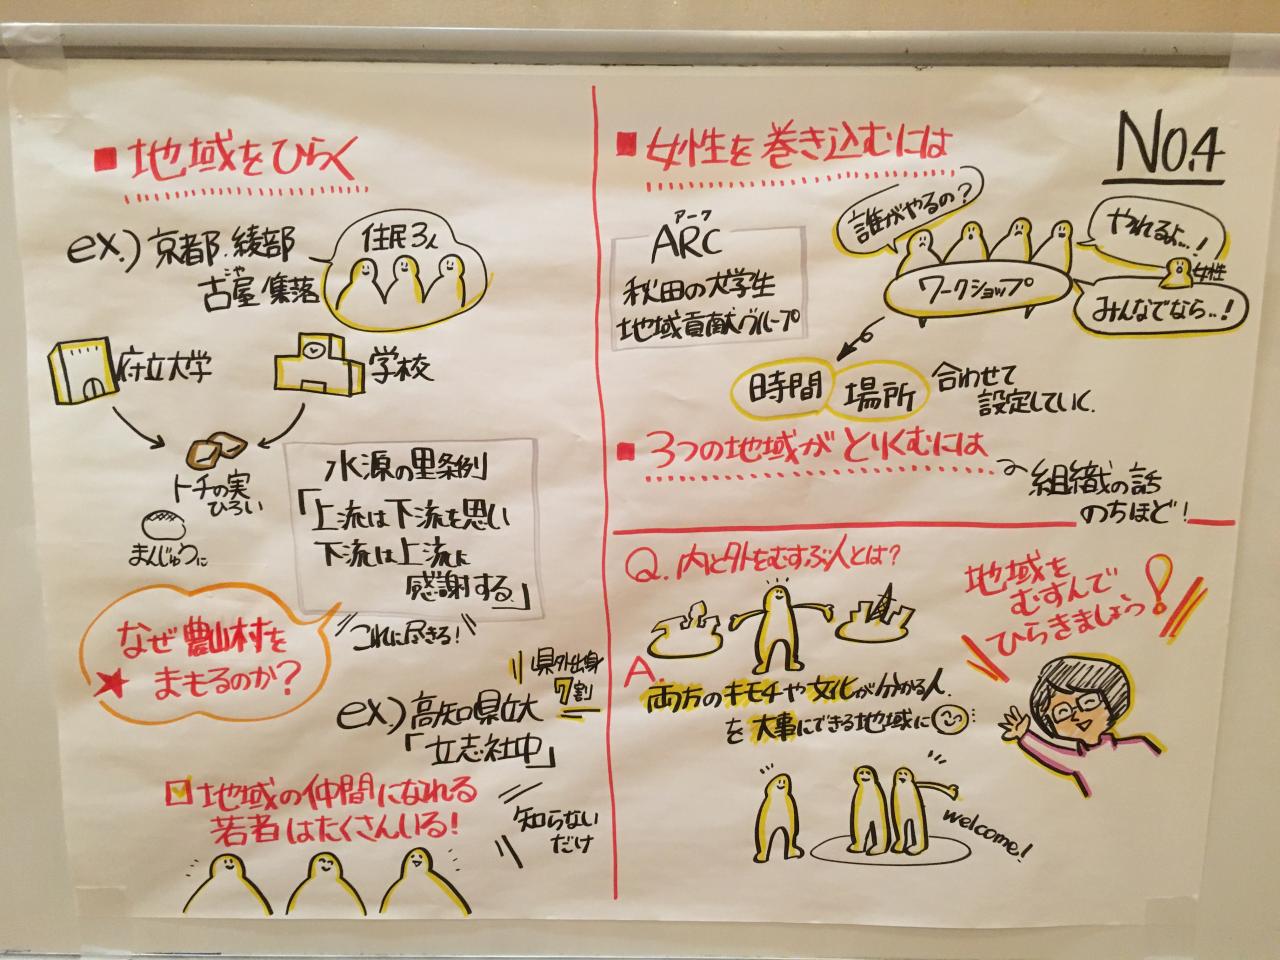 No.4
■地域をひらく
ex.) 京都.綾部
古屋集落
じゃ
住民3人
府立大学
学校
トチの実
ひろい
まんじゅうに
水源の里条例
「上流は下流を思い
下流は上流に
感謝する」
これに尽きる!
なぜ農山村を
★まもるのか?
県外出身
7割
ex.) 高知県立大
「立志社中」
☑地域の仲間になれる
若者はたくさんいる!
知らない
だけ
■女性を巻き込むには
アーク
ARC
秋田の大学生
地域貢献グループ
誰がやるの?
やれるよ...!
女性
みんなでなら..!
ワークショップ
時間
場所
合わせて
設定していく.
■3つの地域がとりくむには
組織の話
のちほど!
Q.内と外をむすぶ人とは?
A.
両方のキモチや文化が分かる人.
を大事にできる地域に
welcome!
地域を
むすんで
ひらきましょう!